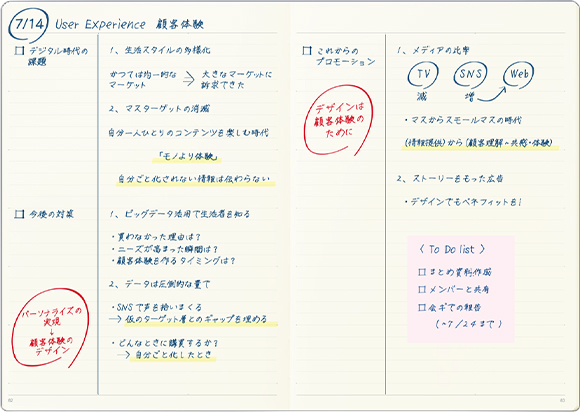 7/14 User Experience 顧客体験
□ デジタル時代の
課題
1、生活スタイルの多様化
かつては均一的な
マーケット
→ 大きなマーケットに
訴求できた
2、マスターゲットの消滅
自分一人ひとりのコンテンツを楽しむ時代
「モノより体験」
自分ごと化されない情報は伝わらない
□ 今後の対策
1、ビッグデータ活用で生活者を知る
・買わなかった理由は?
・ニーズが高まった瞬間は?
・顧客体験を作るタイミングは?
2、データは圧倒的な量で
・SNSで声を拾いまくる
→ 仮のターゲット層とのギャップを埋める
・どんなときに購買するか?
→ 自分ごと化したとき
パーソナライズの
実現
↓
顧客体験の
デザイン
□ これからの
プロモーション
デザインは
顧客体験の
ために
1、メディアの比率
TV SNS Web
減 増
・マスからスモールマスの時代
(情報提供)から(顧客理解〜共感・体験)
2、ストーリーをもった広告
・デザインでもベネフィットを!
〈 To Do list 〉
□ まとめ資料作成
□ メンバーと共有
□ 会ギでの報告
(〜7/24まで)